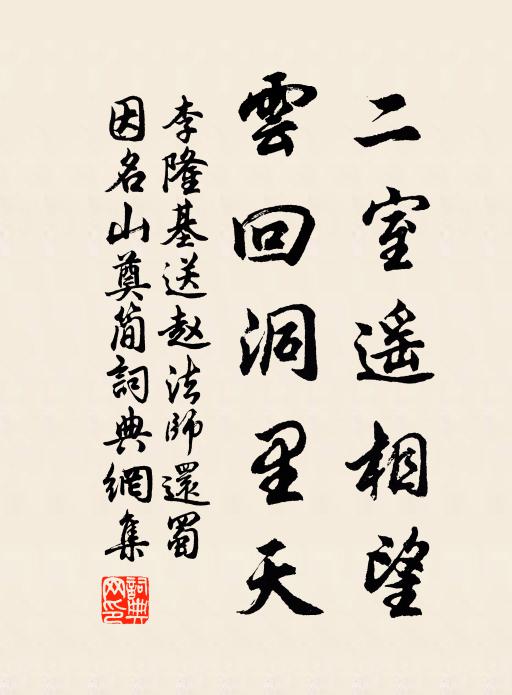 二室遥相望
雲回洞里天
李隆基送赵法師還蜀
因名山奠簡詞典網集
詞典网印